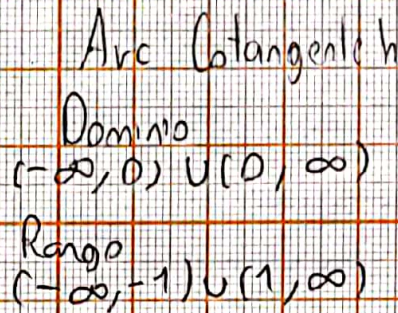 Arc Cotangente h
Dominio
(-∞, 0) ∪ (0, ∞)
Rango
(-∞, -1) ∪ (1, ∞)